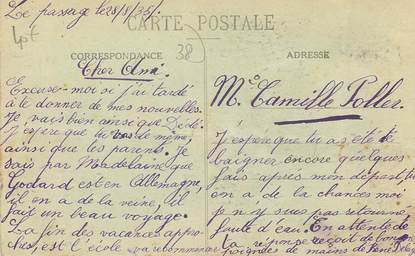 Le passage le 28/8/35/.
40€
CARTE POSTALE
38
CORRESPONDANCE
ADRESSE
Cher Ami
Excuse-moi si j'ai tardé
à te donner de mes nouvelles.
Je vais bien ainsi que Dédé.
J'espère que tu vas de même,
ainsi que tes parents. Je
sais par Madelaine que
Godard est en Allemagne
il en a de la veine, il
fait un beau voyage.
La fin des vacances appro-
ches, est l'école va recommencer
Mr Camille Poller.
J'espère que tu a été te
baigner encore quelques
fois après mon départ, tu
en a de la chances moi
je n'y suis pas retourné
faute d'eau. En attente de
ta réponse reçoit de bonnes
poignées de mains de René